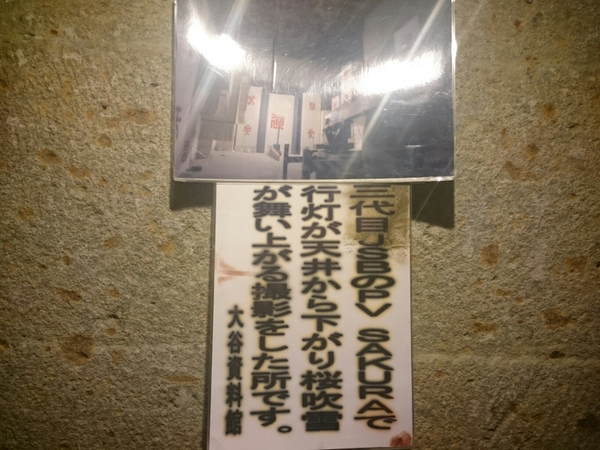 三代目JSBのPV SAKURAで
行灯が天井から下がり桜吹雪
が舞い上がる撮影をした所です。
大谷資料館